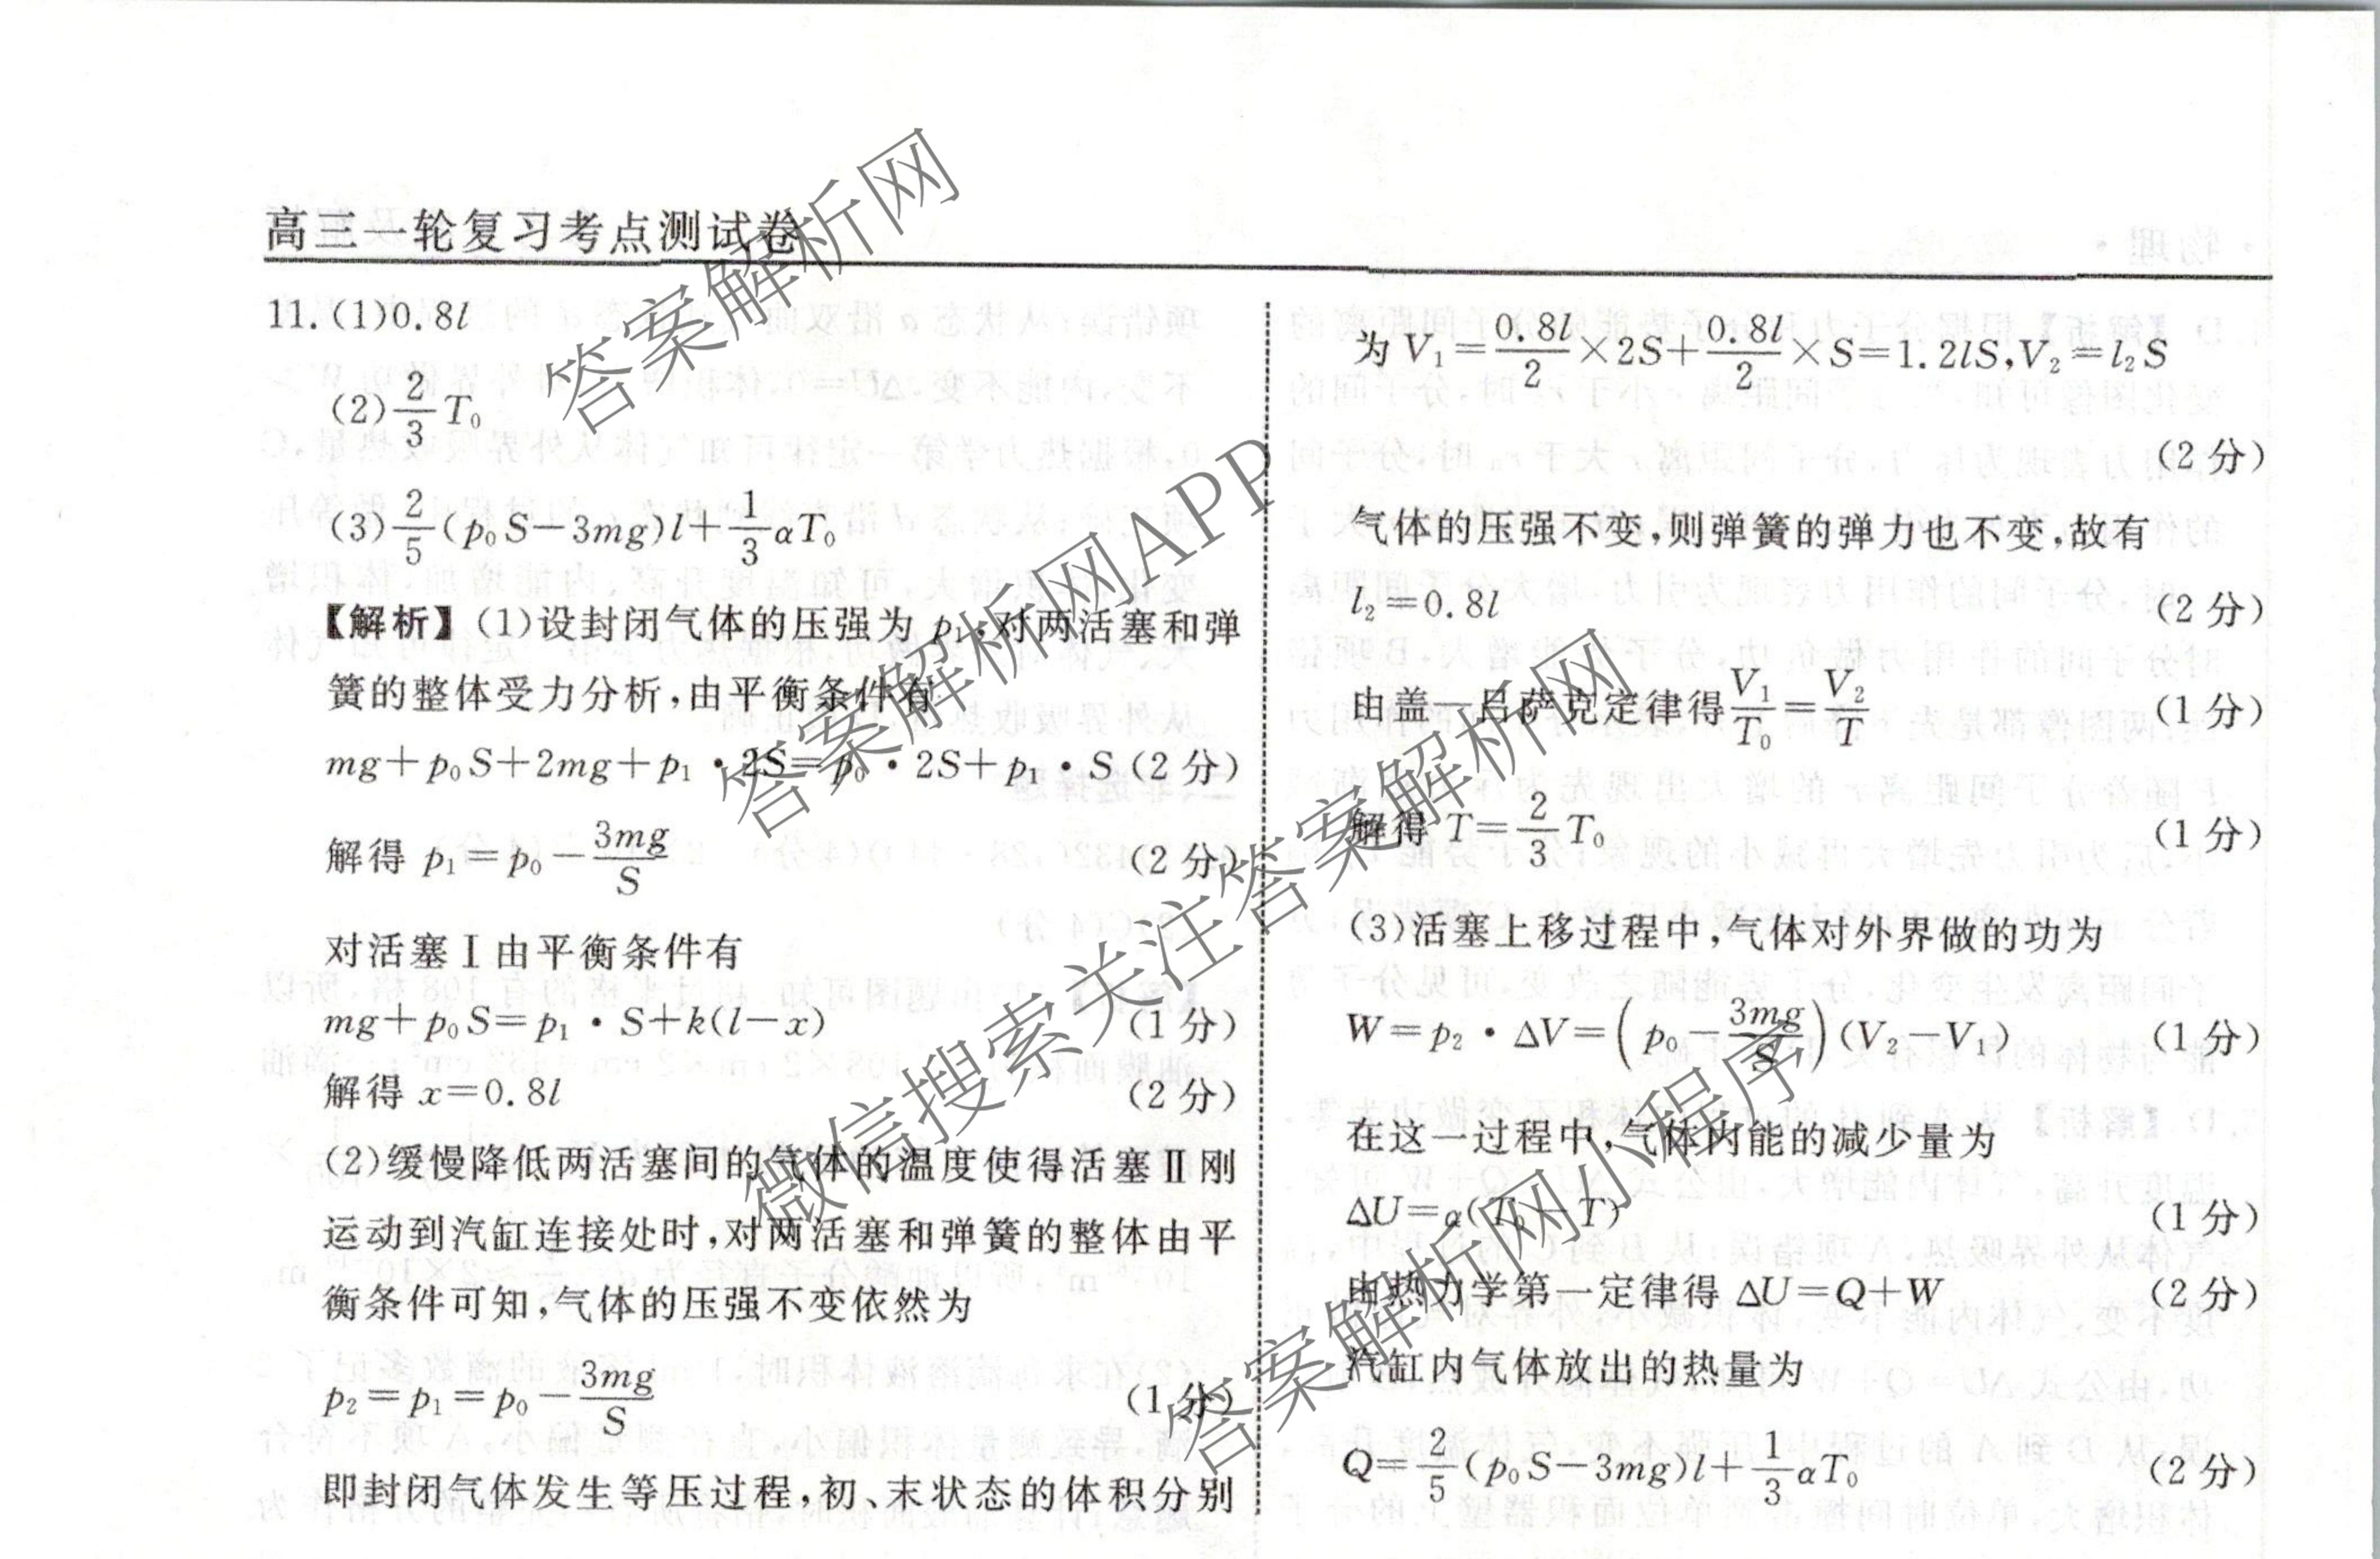 高三一轮复习考点测试卷
11.(1)0.8l
(2)2/3 T₀
(3)2/5(p₀S-3mg)l+1/3αT₀
【解析】(1)设封闭气体的压强为p₁,对两活塞和弹
簧的整体受力分析,由平衡条件有
mg+p₀S+2mg+p₁·2S=p₀·2S+p₁·S(2分)
解得 p₁=p₀-3mg/S (2分)
对活塞Ⅰ由平衡条件有
mg+p₀S=p₁·S+k(l-x) (1分)
解得 x=0.8l (2分)
(2)缓慢降低两活塞间的气体的温度使得活塞Ⅱ刚
运动到汽缸连接处时,对两活塞和弹簧的整体由平
衡条件可知,气体的压强不变依然为
p₂=p₁=p₀-3mg/S (1分)
即封闭气体发生等压过程,初、末状态的体积分别
为 V₁=0.8l/2×2S+0.8l/2×S=1.2lS,V₂=l₂S
(2分)
气体的压强不变,则弹簧的弹力也不变,故有
l₂=0.8l (2分)
由盖—吕萨克定律得V₁/T₀=V₂/T (1分)
解得 T=2/3 T₀ (1分)
(3)活塞上移过程中,气体对外界做的功为
W=p₂·ΔV=(p₀-3mg/S)(V₂-V₁) (1分)
在这一过程中,气体内能的减少量为
ΔU=α(T₀-T) (1分)
由热力学第一定律得 ΔU=Q+W (2分)
汽缸内气体放出的热量为
Q=2/5(p₀S-3mg)l+1/3αT₀ (2分)
答案解析网
答案解析网APP
微信搜索关注答案解析网
答案解析网小程序